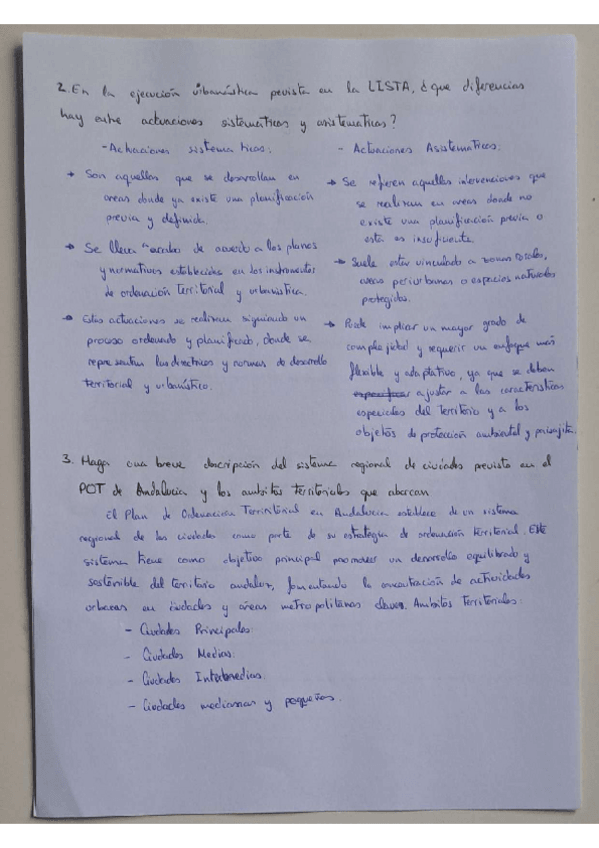 2. En la ejecución urbanística pevista en la LISTA, ¿que diferencias
hay entre actuaciones sistematicas y asistematicas?
- Actuaciones sistematicas:
→ Son aquellas que se desarrollan en
areas donde ya existe una planificación
previa y definida.
→ Se lleva acabo de acuerdo a los planos
y normativas establecidas en los instrumentos
de ordenación territorial y urbanística.
→ Estas actuaciones se realizan siguiendo un
proceso ordenado y planificado, donde se
representan las directrices y normas de desarrollo
territorial y urbanístico.
- Actuaciones Asistematicas:
→ Se refieren aquellas intervenciones que
se realizan en areas donde no
existe una planificación previa o
esta es insuficiente.
→ Suele estar vinculado a zonas rurales,
areas periurbanas o espacios naturales
protegidos.
→ Puede implicar un mayor grado de
complejidad y requerir un enfoque más
flexible y adaptativo, ya que se deben
ajustar a las características
especiales del territorio y a los
objetivos de protección ambiental y paisajista.
3. Haga una breve descripción del sistema regional de ciudades previsto en el
POT de Andalucia y los ambitos territoriales que abarcan
El Plan de Ordenación Territorial en Andalucia establece de un sistema
regional de las ciudades como parte de su estrategia de ordenación territorial. Este
sistema tiene como objetivo principal promover un desarrollo equilibrado y
sostenible del territorio andaluz, fomentando la concentración de actividades
urbanas en ciudades y áreas metropolitanas claves. Ambitos Territoriales:
- Ciudades Principales.
- Ciudades Medias.
- Ciudades Intermedias.
- Ciudades medianas y pequeñas.